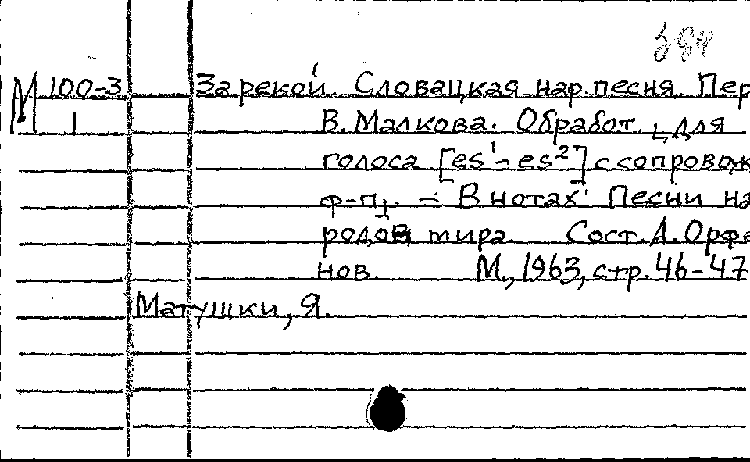 М 100-3 За рекой. Словацкая нар. песня. Пер
1 В. Малкова. Обработ. для
голоса [es¹-es²] с сопровож
ф-п. – В нотах: Песни на
родов мира. Сост. А. Орфе
нов. М., 1963, стр. 46-47
Матушки, Я.